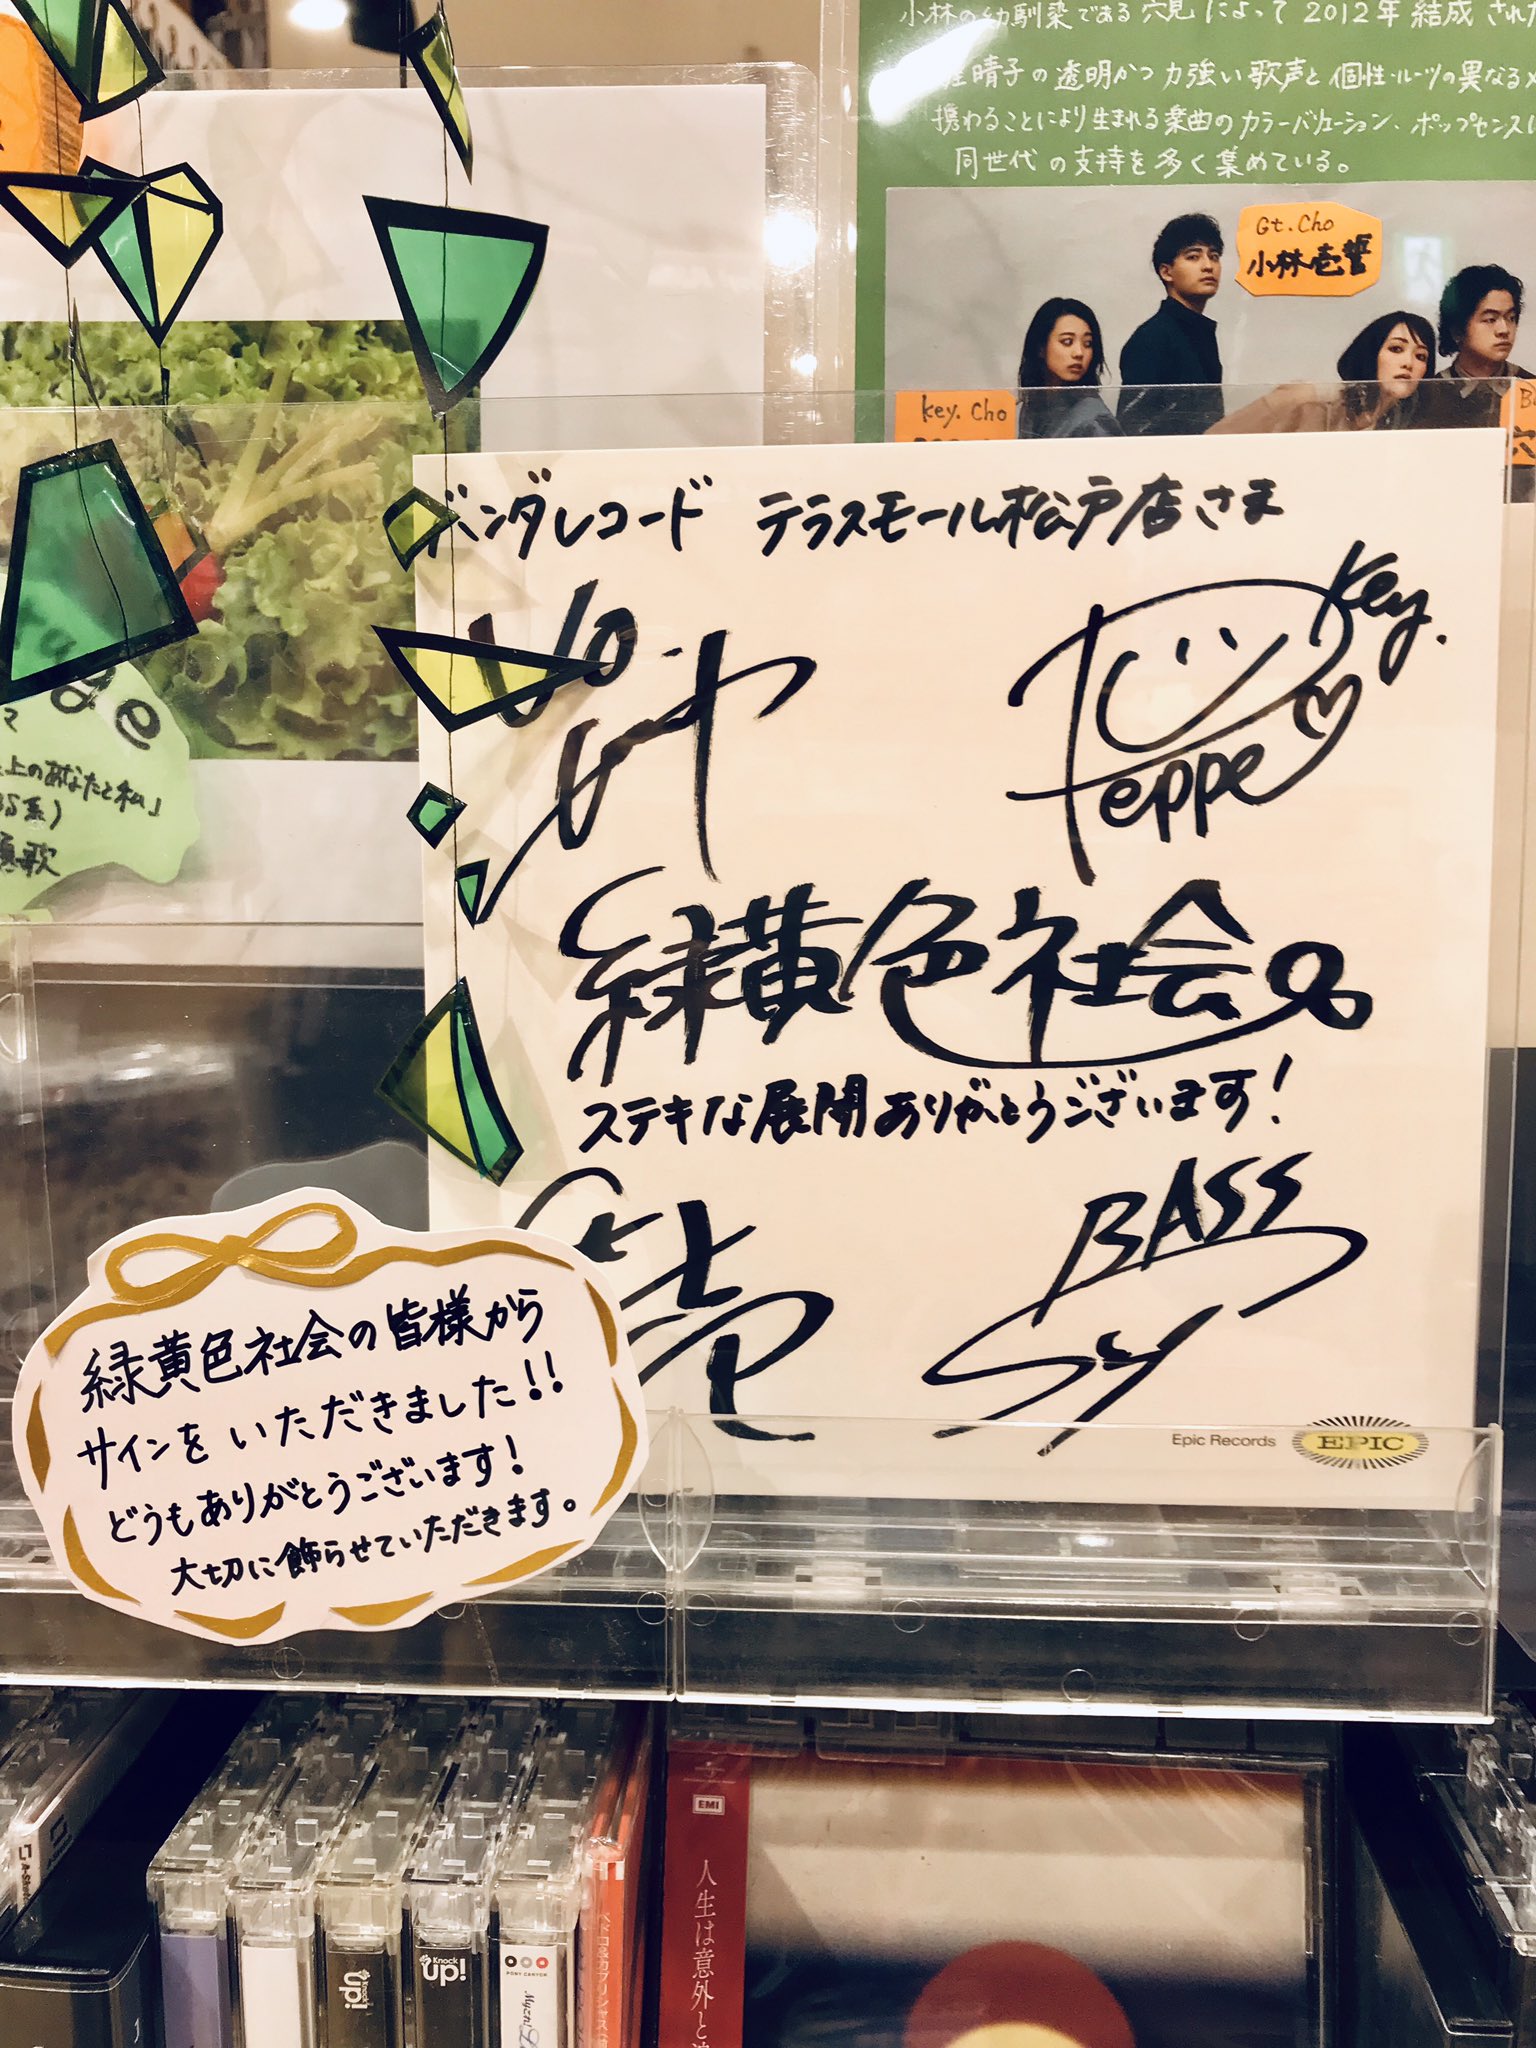 小林の幼馴染である穴見によって2012年結成された
晴子の透明かつ力強い歌声と個性・ルーツの異なる
携わることにより生まれる楽曲のカラーバリエーション、ポップセンスに
同世代の支持を多く集めている。
Gt. Cho
小林壱誓
key. Cho
バンダレコード テラスモール松戸店さま
Vo.
Key.
Peppe
緑黄色社会
ステキな展開ありがとうございます!
BASS
Epic Records
EPIC
上のあなたと私」
緑黄色社会の皆様から
サインをいただきました!!
どうもありがとうございます!
大切に飾らせていただきます。
Knock up!
Knock up!
PONY CANYON
EMI
人生は意外と